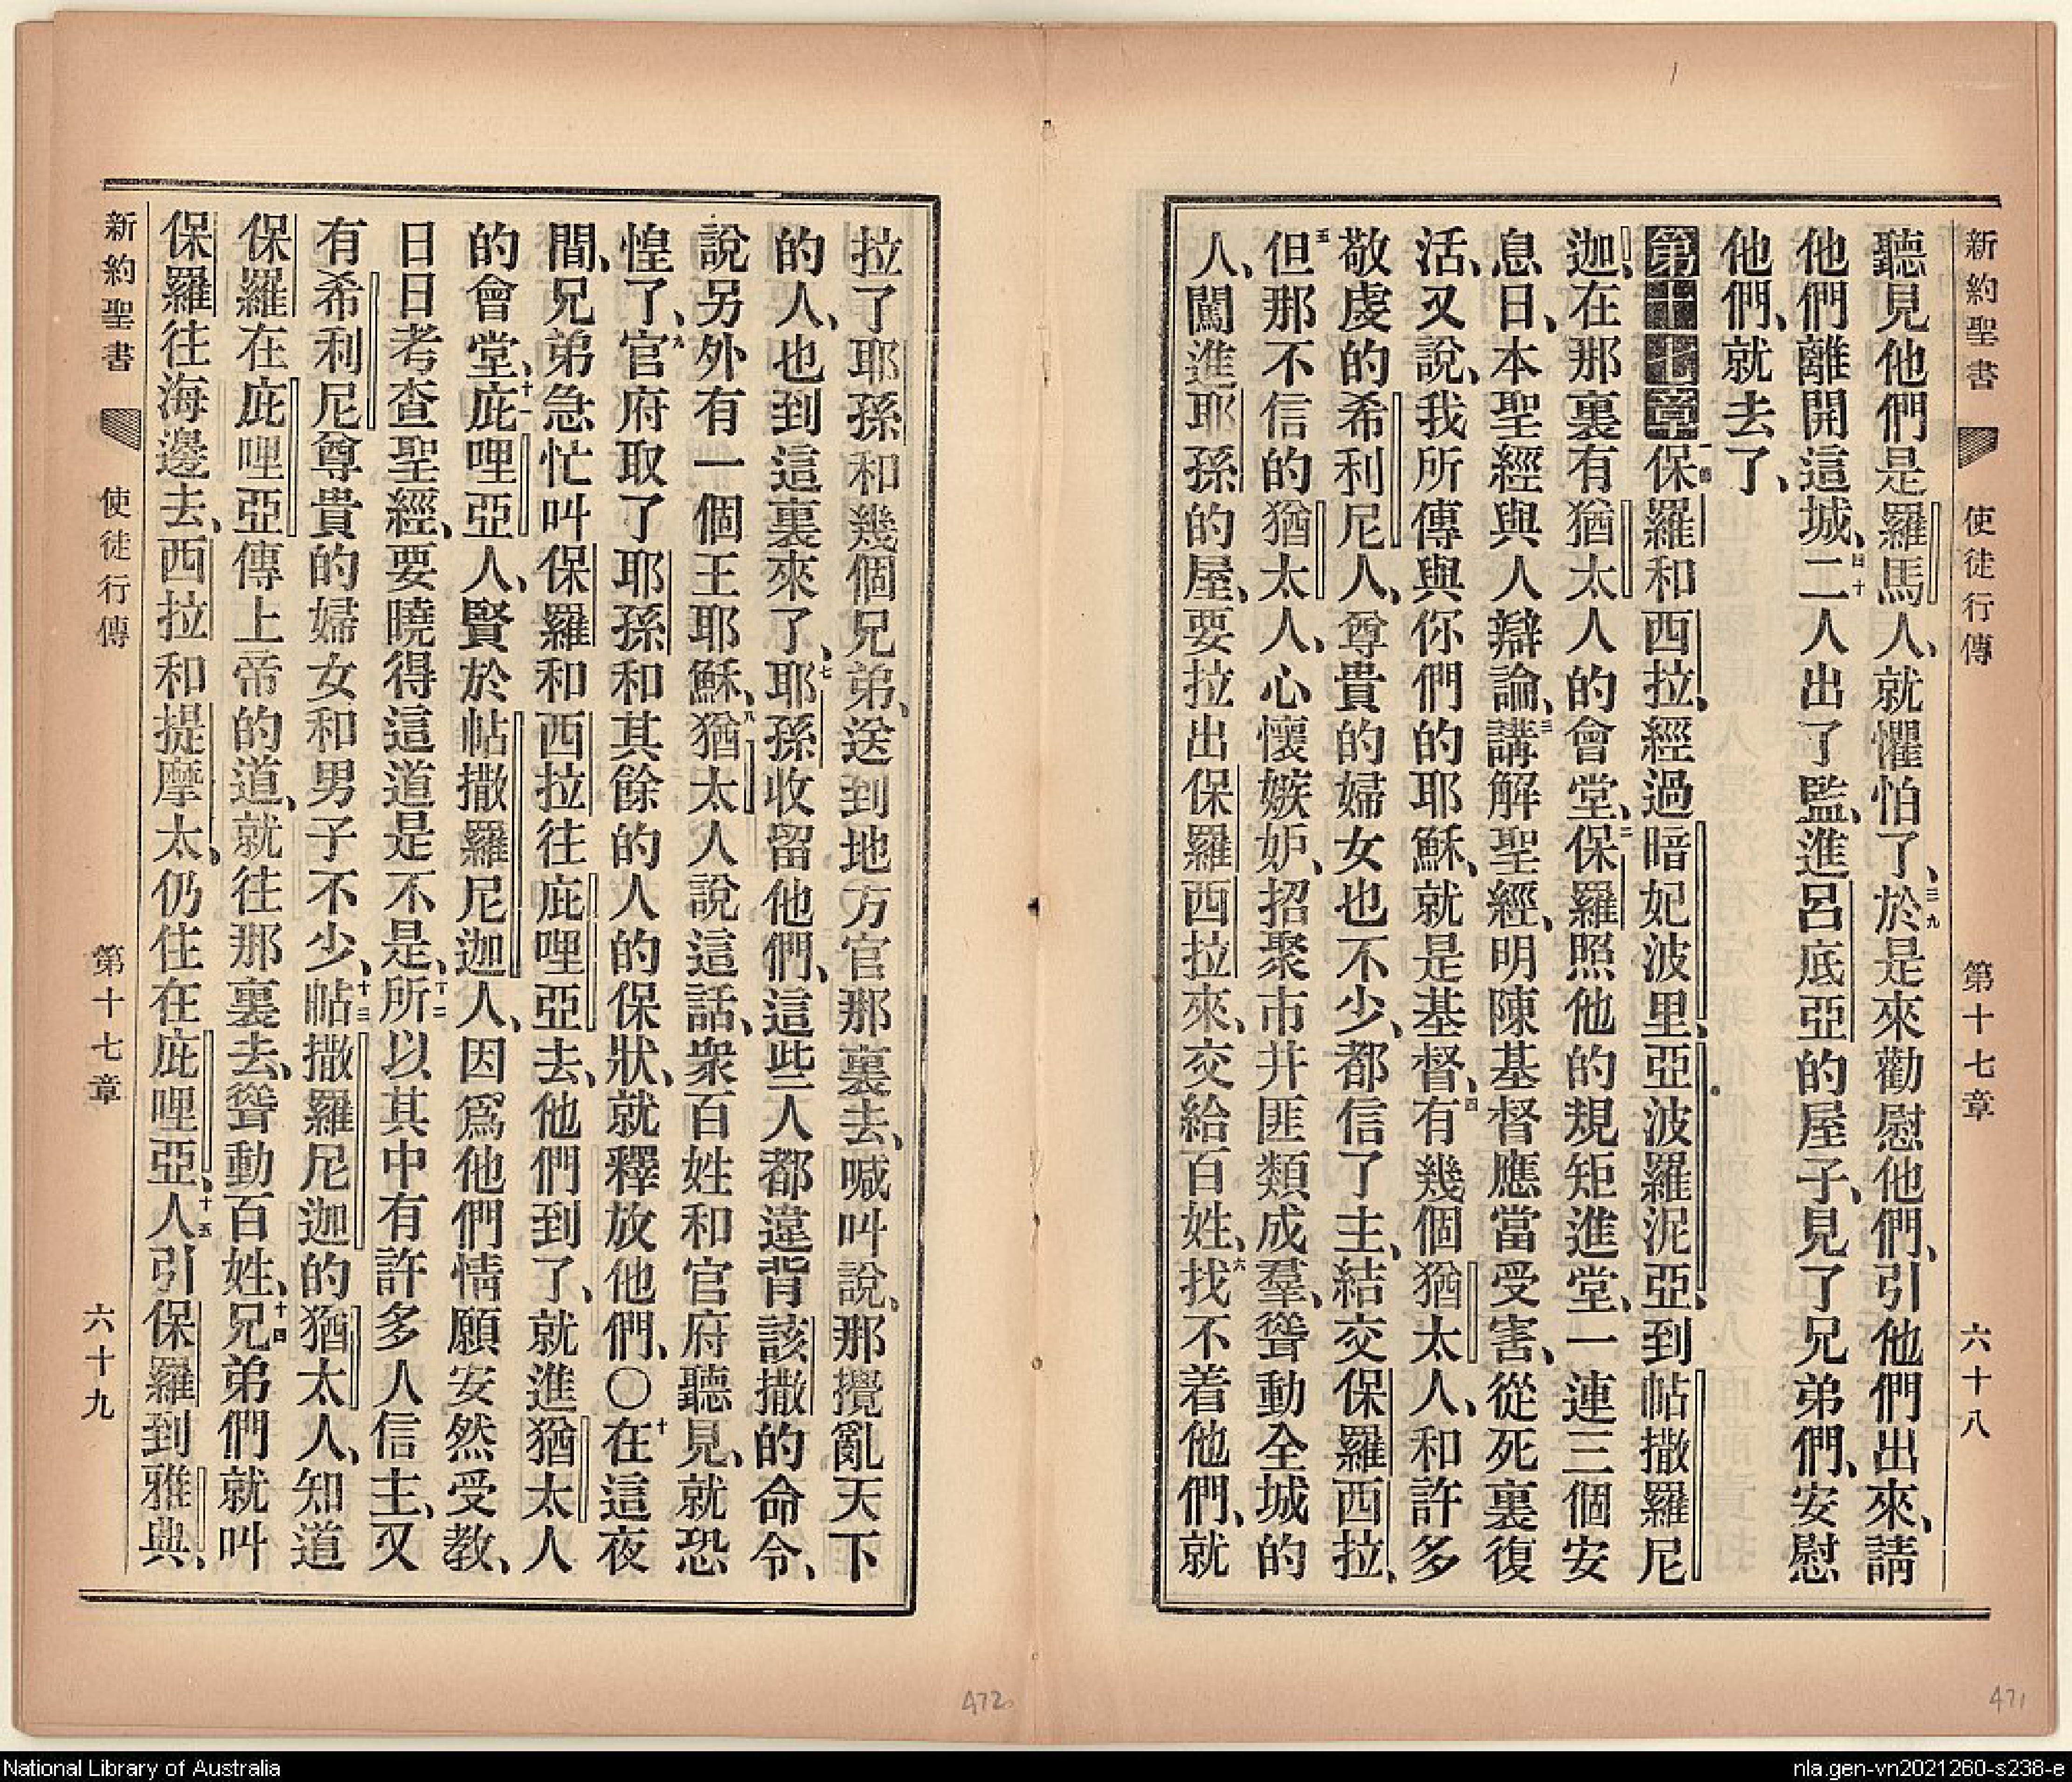 新約聖書 使徒行傳 第十七章 六十八
聽見他們是羅馬人、就懼怕了、三九於是來勸慰他們、引他們出來、請
他們離開這城、四十二人出了監、進呂底亞的屋子、見了兄弟們、安慰
他們、就去了、
第十七章一節保羅和西拉、經過暗妃波里、亞波羅泥亞、到帖撒羅尼
迦、在那裏有猶太人的會堂、二保羅照他的規矩進堂、一連三個安
息日、本聖經與人辯論、三講解聖經、明陳基督應當受害、從死裏復
活、又說、我所傳與你們的耶穌、就是基督、四有幾個猶太人、和許多
敬虔的希利尼人、尊貴的婦女也不少、都信了主、結交保羅西拉、
五但那不信的猶太人、心懷嫉妒、招聚市井匪類成羣、聳動全城的
人、闖進耶孫的屋、要拉出保羅西拉來、交給百姓、六找不着他們、就
拉了耶孫和幾個兄弟、送到地方官那裏去、喊叫說、那攪亂天下
的人、也到這裏來了、七耶孫收留他們、這些人都違背該撒的命令、
說另外有一個王耶穌、八猶太人說這話、衆百姓和官府聽見、就恐
惶了、九官府取了耶孫和其餘的人的保狀、就釋放他們、〇十在這夜
間、兄弟急忙叫保羅和西拉往庇哩亞去、他們到了、就進猶太人
的會堂、十一庇哩亞人、賢於帖撒羅尼迦人、因爲他們情願安然受教、
日日考查聖經、要曉得這道是不是、十二所以其中有許多人信主、又
有希利尼尊貴的婦女和男子不少、十三帖撒羅尼迦的猶太人、知道
保羅在庇哩亞傳上帝的道、就往那裏去、聳動百姓、十四兄弟們就叫
保羅往海邊去、西拉和提摩太、仍住在庇哩亞、十五人引保羅到雅典、
新約聖書 使徒行傳 第十七章 六十九
472
471
National Library of Australia
nla.gen-vn2021260-s238-e